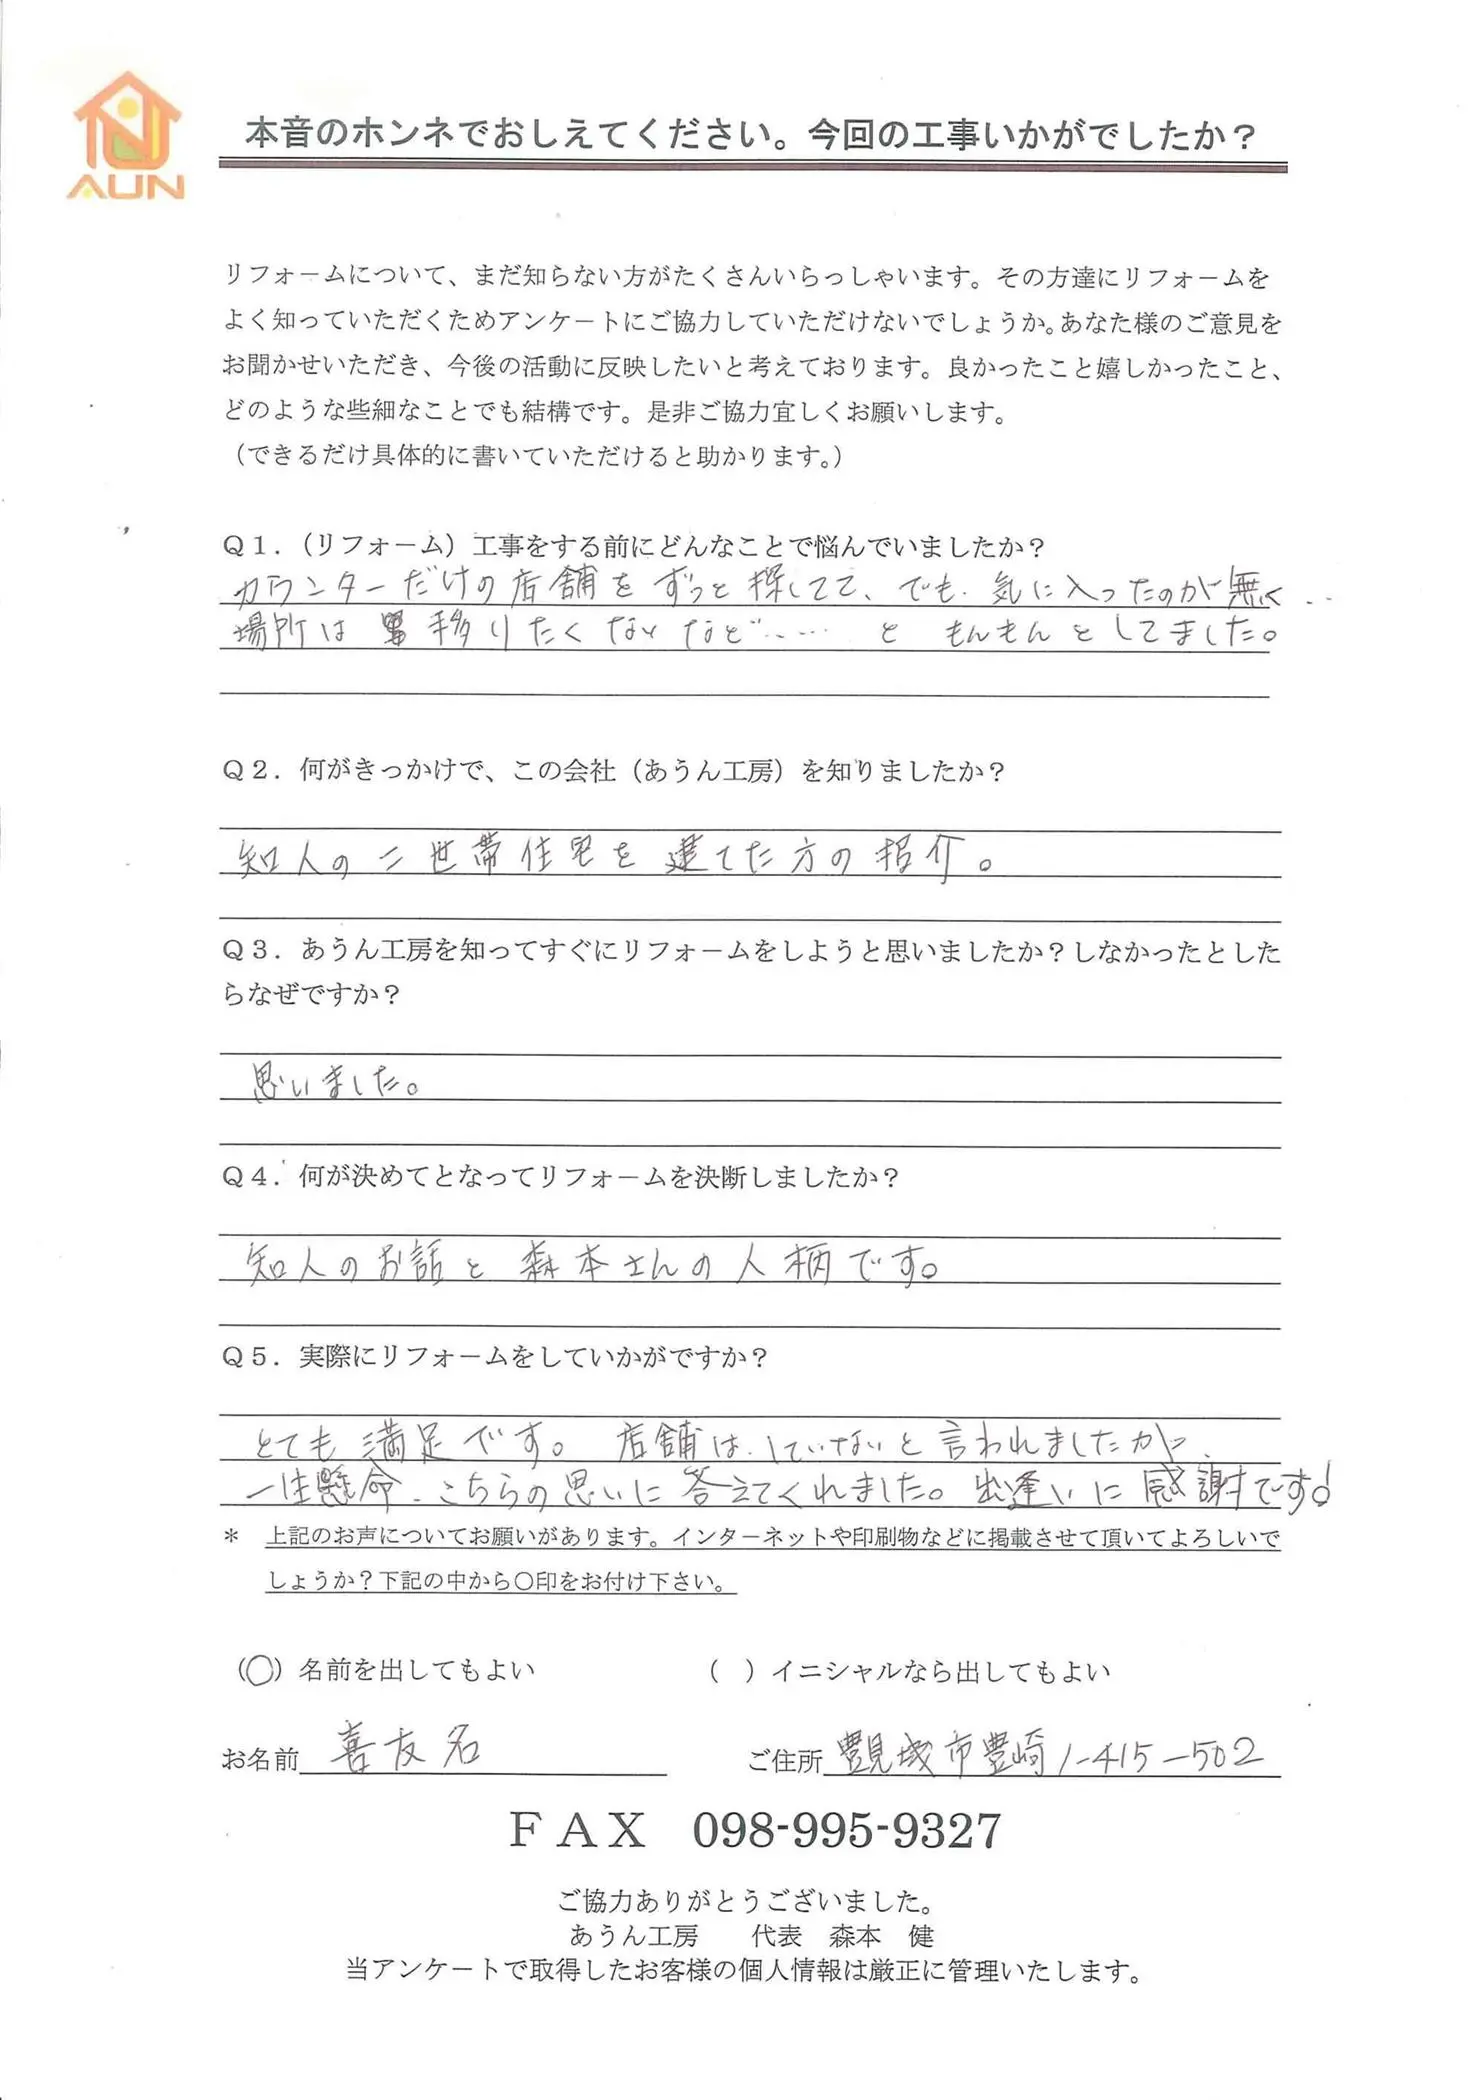 AUN
本音のホンネでおしえてください。今回の工事いかがでしたか？
リフォームについて、まだ知らない方がたくさんいらっしゃいます。その方達にリフォームを
よく知っていただくためアンケートにご協力していただけないでしょうか。あなた様のご意見を
お聞かせいただき、今後の活動に反映したいと考えております。良かったこと嬉しかったこと、
どのような些細なことでも結構です。是非ご協力宜しくお願いします。
（できるだけ具体的に書いていただけると助かります。）
Ｑ１．（リフォーム）工事をする前にどんなことで悩んでいましたか？
カウンターだけの店舗をずっと探してて、でも、気に入ったのが無く…
場所は移りたくないなど……と もんもんとしてました。
Ｑ２．何がきっかけで、この会社（あうん工房）を知りましたか？
知人の二世帯住宅を建てた方の紹介。
Ｑ３．あうん工房を知ってすぐにリフォームをしようと思いましたか？しなかったとした
らなぜですか？
思いました。
Ｑ４．何が決めてとなってリフォームを決断しましたか？
知人のお話と森本さんの人柄です。
Ｑ５．実際にリフォームをしていかがですか？
とても満足です。店舗は、していないと言われましたが、
一生懸命、こちらの思いに答えてくれました。出逢いに感謝です！
＊ 上記のお声についてお願いがあります。インターネットや印刷物などに掲載させて頂いてよろしいで
しょうか？下記の中から〇印をお付け下さい。
（〇）名前を出してもよい （ ）イニシャルなら出してもよい
お名前 喜友名 ご住所 豊見城市豊崎1-415-502
ＦＡＸ 098-995-9327
ご協力ありがとうございました。
あうん工房 代表 森本 健
当アンケートで取得したお客様の個人情報は厳正に管理いたします。